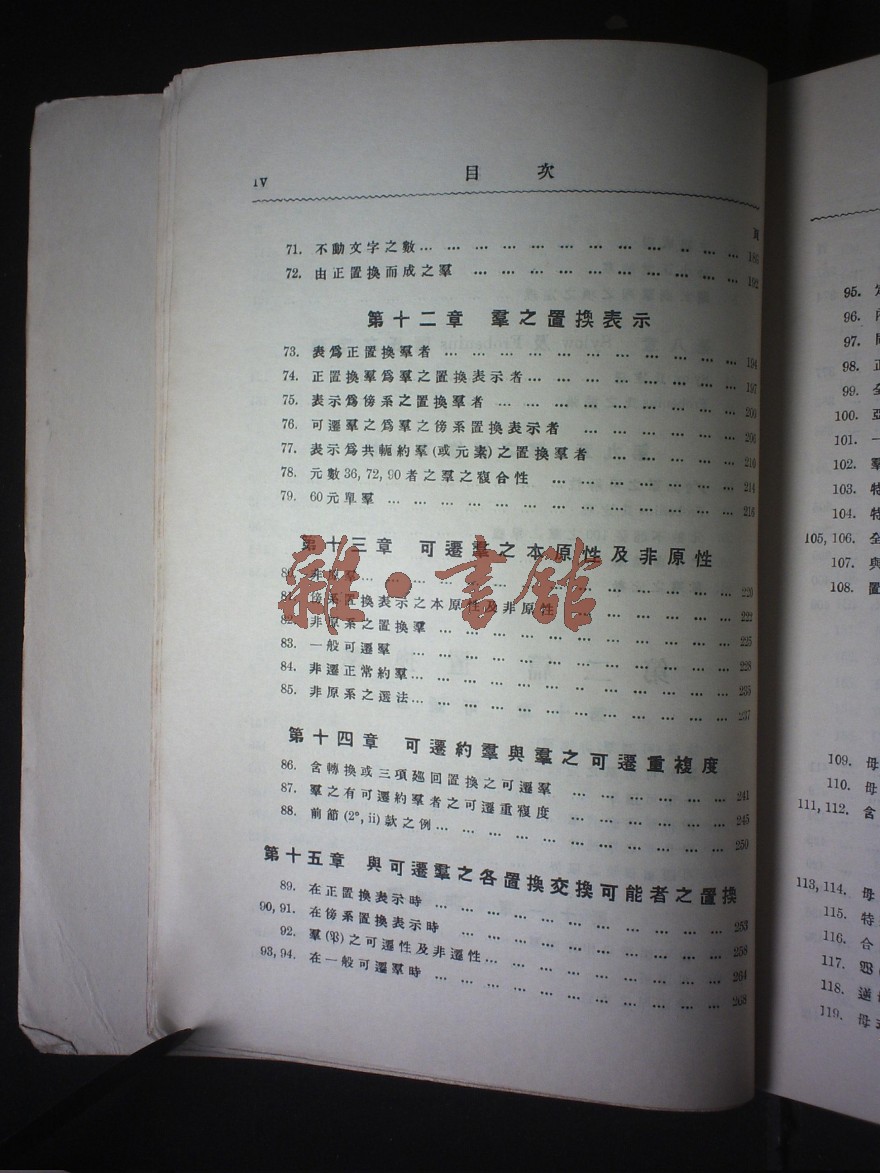 IV
目 次
頁
71. 不動文字之數… … … … … … … … … … … … 189
72. 由正置換而成之羣 … … … … … … … … … … 192
第十二章 羣之置換表示
73. 表爲正置換羣者 … … … … … … … … … … … 194
74. 正置換羣爲羣之置換表示者… … … … … … … … 197
75. 表示爲傍系之置換羣者 … … … … … … … … … 200
76. 可遷羣之爲羣之傍系置換表示者 … … … … … … 206
77. 表示爲共軛約羣(或元素)之置換羣者 … … … … … 210
78. 元數36, 72, 90者之羣之複合性 … … … … … … … 214
79. 60元單羣 … … … … … … … … … … … … … 216
第十三章 可遷羣之本原性及非原性
80. 非原羣… … … … … … … … … … … … … 220
81. 傍系置換表示之本原性及非原性 … … … … … … 222
82. 非原系之置換羣 … … … … … … … … … … … 225
83. 一般可遷羣 … … … … … … … … … … … … 228
84. 非遷正常約羣… … … … … … … … … … … … 235
85. 非原系之選法… … … … … … … … … … … … 237
第十四章 可遷約羣與羣之可遷重複度
86. 含轉換或三項巡回置換之可遷羣 … … … … … … 241
87. 羣之有可遷約羣者之可遷重複度 … … … … … … 245
88. 前節(2°, ii)款之例… … … … … … … … … … 250
第十五章 與可遷羣之各置換交換可能者之置換
89. 在正置換表示時 … … … … … … … … … … 253
90, 91. 在傍系置換表示時 … … … … … … … … … 258
92. 羣之可遷性及非遷性… … … … … … … … 264
93, 94. 在一般可遷羣時 … … … … … … … … … … 268
雜·書館
95.
96.
97.
98. 正
99. 全
100. 亞
101. 一
102. 羣
103. 特
104. 特
105, 106. 全
107. 與
108. 置
109. 母
110. 母
111, 112. 含
113, 114. 母
115. 特
116. 合
117.
118.
119. 母